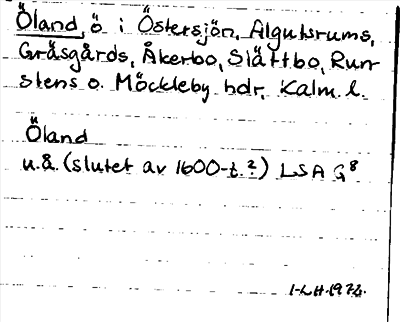 Öland, ö i Östersjön, Algutsrums,
Gräsgårds, Åkerbo, Slättbo, Run-
stens o. Möckleby hdr, Kalm. l.
Öland
u.å. (slutet av 1600-t.?) LSA G8
I-LH.1972.